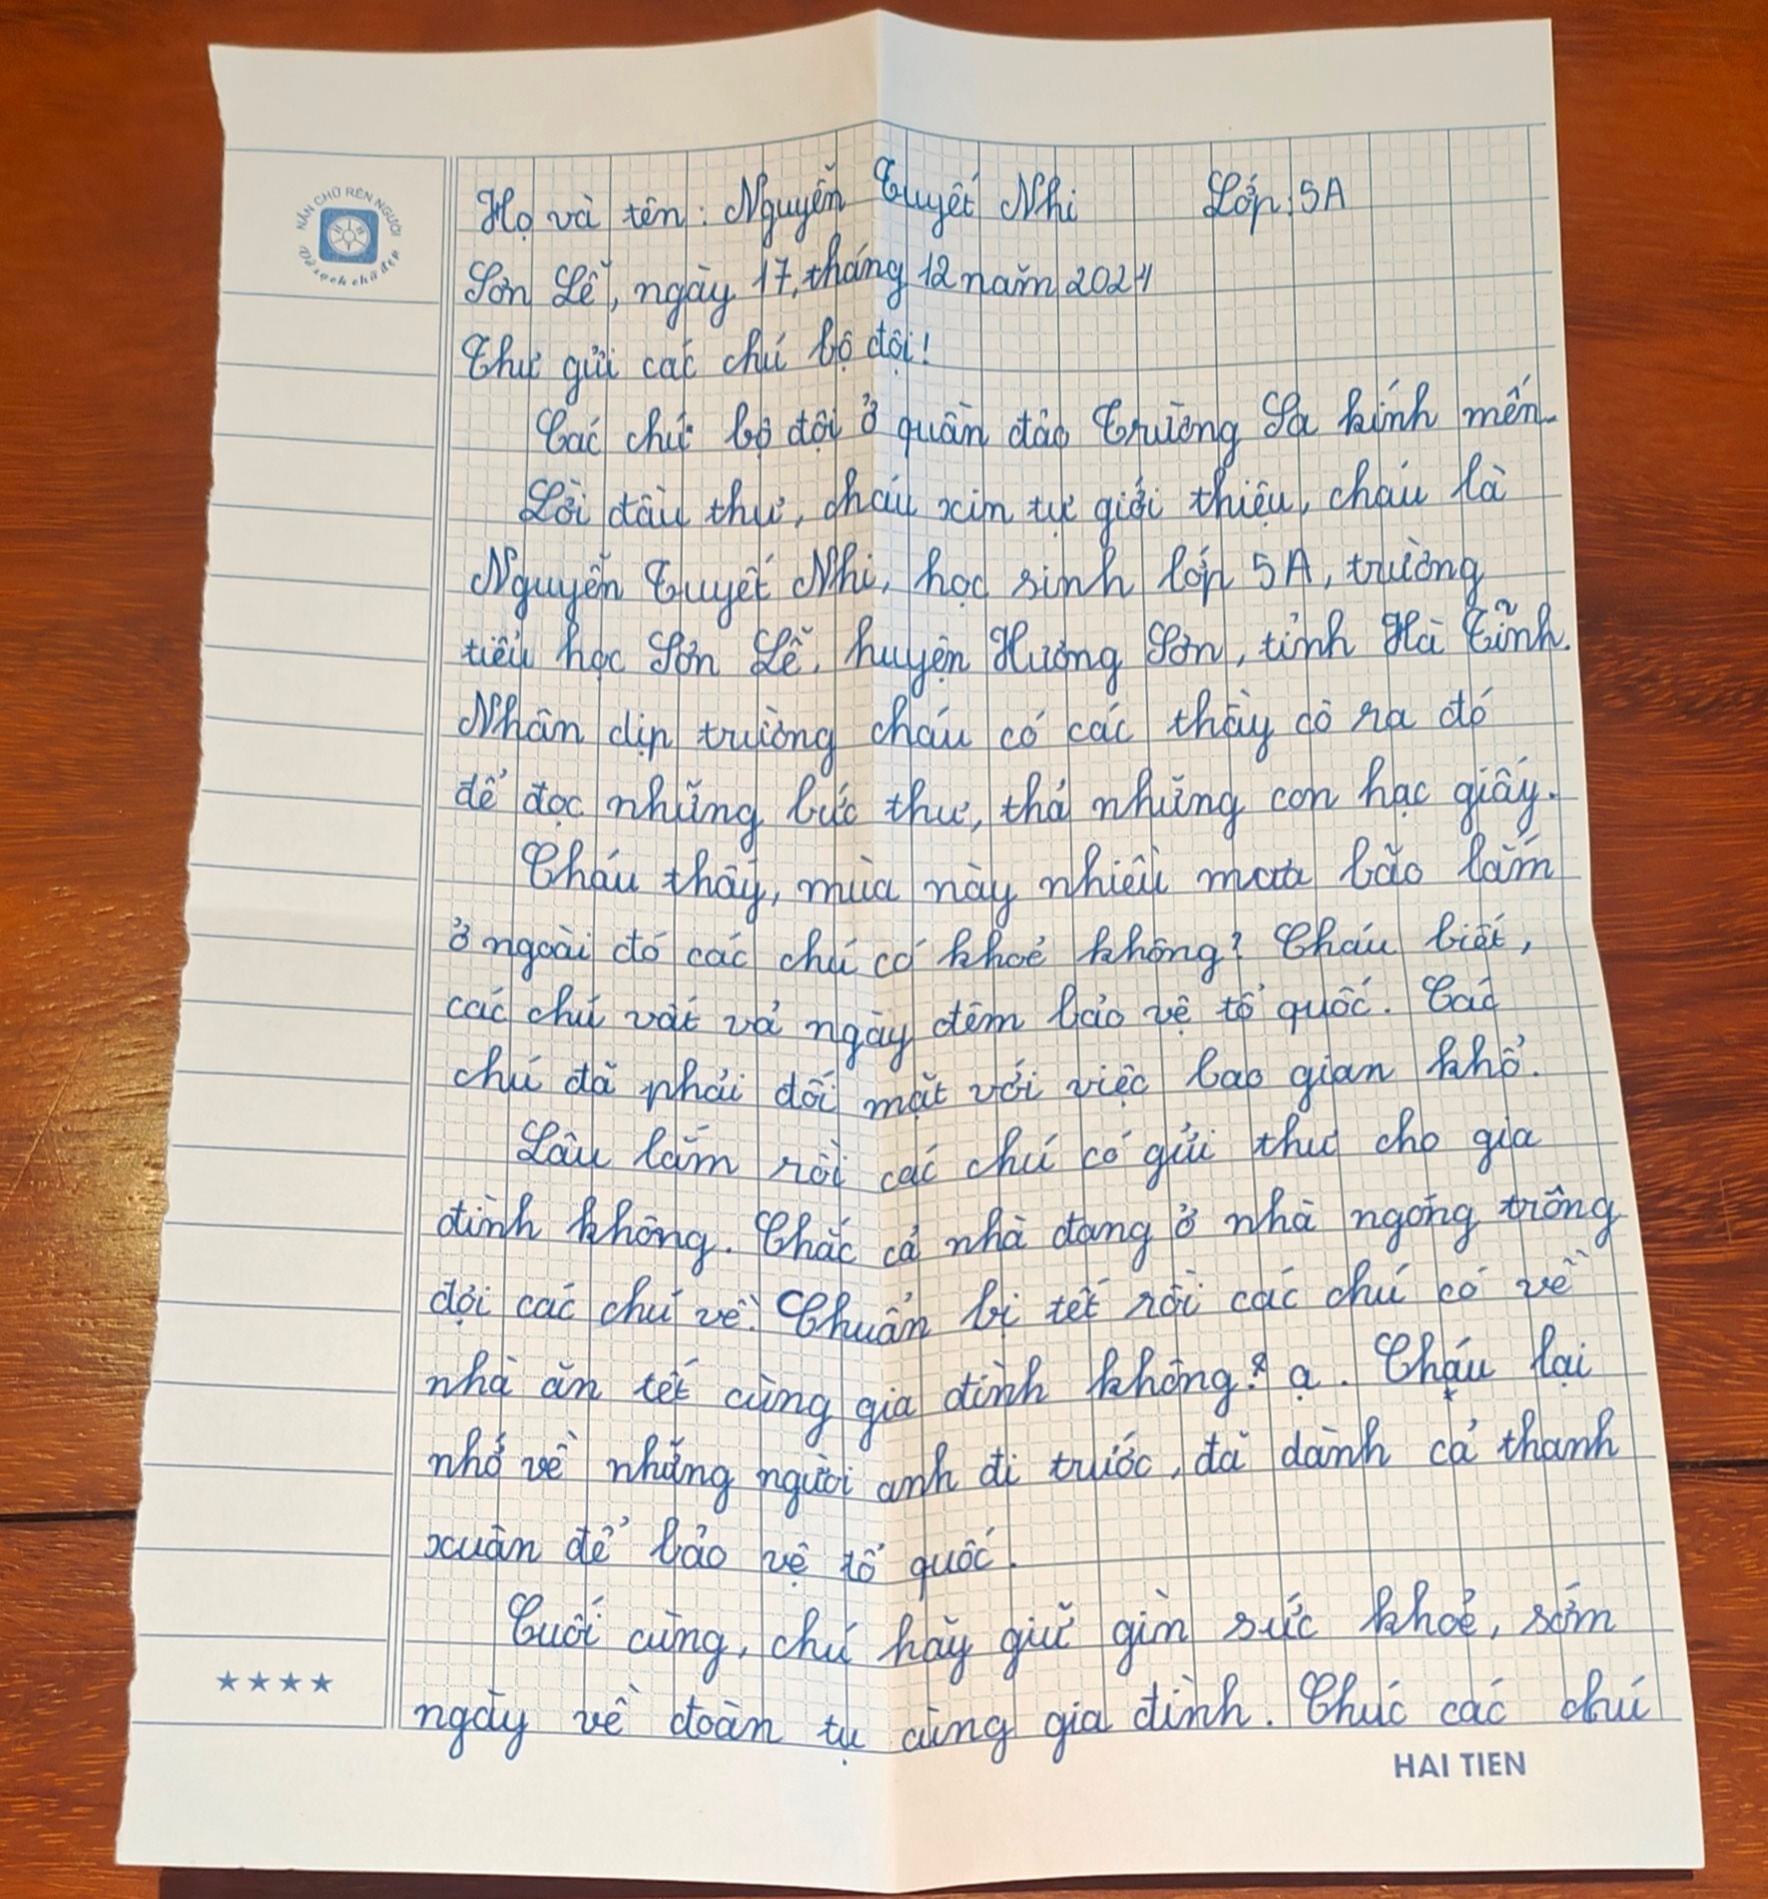 NẮN CHỮ RÈN NGƯỜI
Vở sạch chữ đẹp
Họ và tên: Nguyễn Tuyết Nhi Lớp: 5A
Sơn Lễ, ngày 17, tháng 12 năm 2024
Thư gửi các chú bộ đội!
Các chú bộ đội ở quần đảo Trường Sa kính mến.
Lời đầu thư, cháu xin tự giới thiệu, cháu là
Nguyễn Tuyết Nhi, học sinh lớp 5A, trường
tiểu học Sơn Lễ, huyện Hương Sơn, tỉnh Hà Tĩnh.
Nhân dịp trường cháu có các thầy cô ra đó
để đọc những bức thư, thả những con hạc giấy.
Cháu thấy, mùa này nhiều mưa bão lắm
ở ngoài đó các chú có khoẻ không? Cháu biết,
các chú vất vả ngày đêm bảo vệ tổ quốc. Các
chú đã phải đối mặt với việc bao gian khổ.
Lâu lắm rồi các chú có gửi thư cho gia
đình không. Chắc cả nhà đang ở nhà ngóng trông
đợi các chú về. Chuẩn bị tết rồi các chú có về
nhà ăn tết cùng gia đình không? ạ. Cháu lại
nhớ về những người anh đi trước, đã dành cả thanh
xuân để bảo vệ tổ quốc.
Cuối cùng, chú hãy giữ gìn sức khoẻ, sớm
ngày về đoàn tụ cùng gia đình. Chúc các chú
HAI TIEN